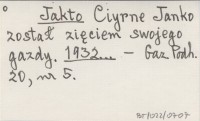 Jakto Ciyrne Janko
został zięciem swojego
gazdy. 1932... – Gaz Podh.
20, nr 5.